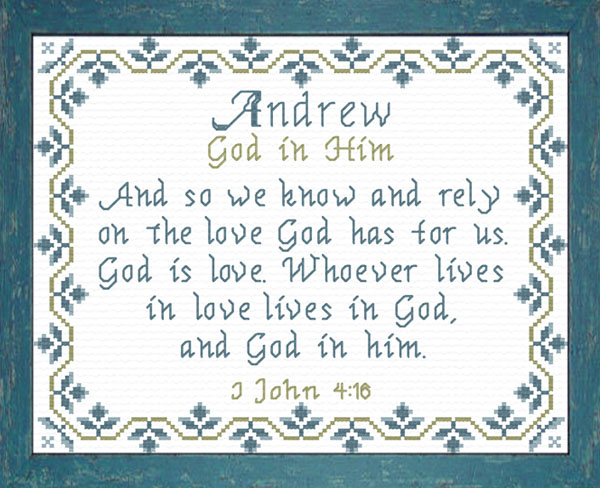 Andrew
God in Him
And so we know and rely
on the love God has for us.
God is love. Whoever lives
in love lives in God,
and God in him.
I John 4:16